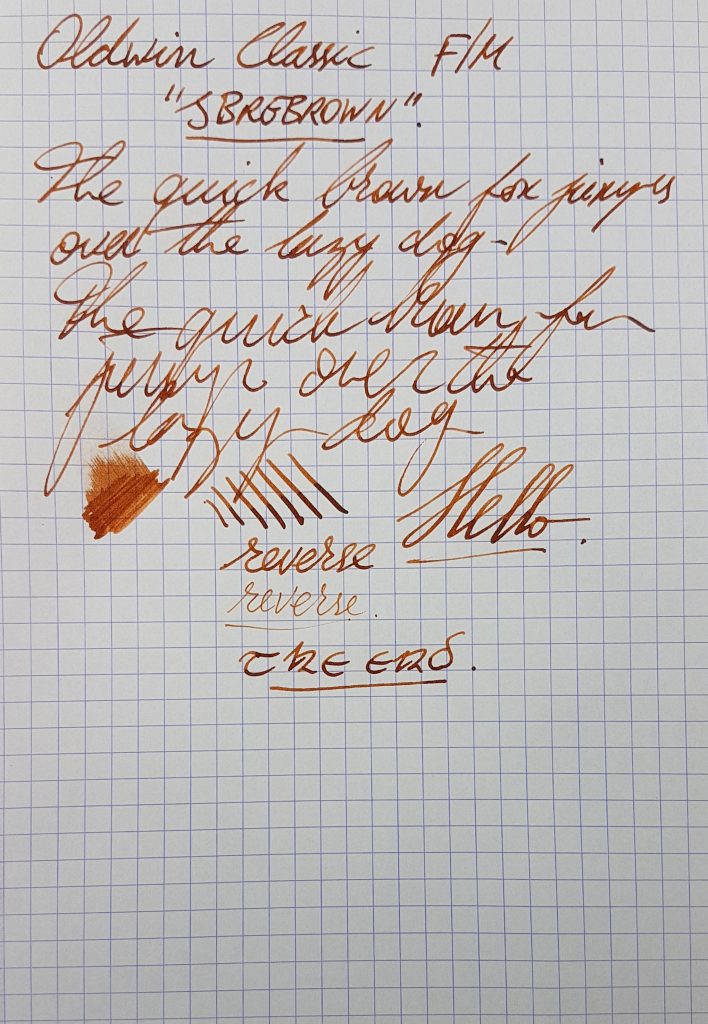 Oldwin Classic F/M
"SBREBROWN".
The quick brown fox jumps
over the lazy dog-
The quick brown fox
jumps over the
lazy dog
Hello.
reverse
reverse.
THE END.